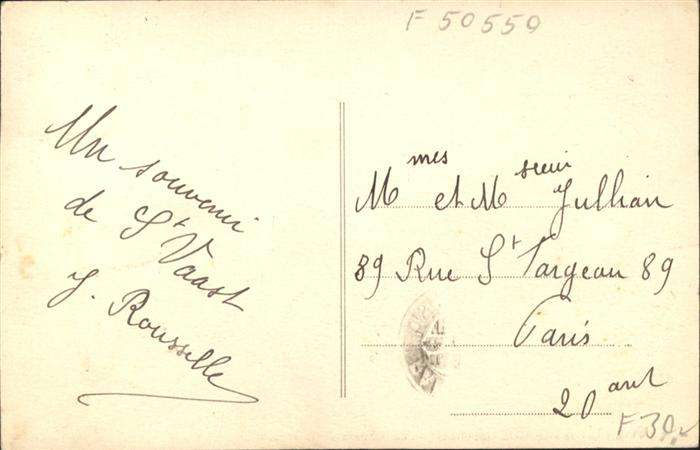 F 50550
Un souvenir
de St Vaast
J. Rousselle
Mmes et Msieur Jullian
89 Rue St Fargeau 89
Paris
20 arrt
F 30,